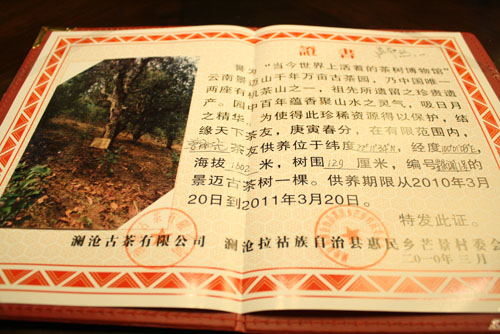 證書
誉为"当今世界上活着的茶树博物馆"
云南景迈山千年万亩古茶园，乃中国唯一
两座有机茶山之一，祖先所遗留之珍贵遗
产。园中百年蕴香聚山水之灵气，吸日月
之精华。为使得此珍稀资源得以保护，结
缘天下茶友，庚寅春分，在有限范围内，
茶友供养位于纬度 经度
海拔1602米，树围129厘米，编号 的
景迈古茶树一棵。供养期限从2010年3月
20日到2011年3月20日。
特发此证。
澜沧古茶有限公司 澜沧拉祜族自治县惠民乡芒景村委会
二〇一〇年三月